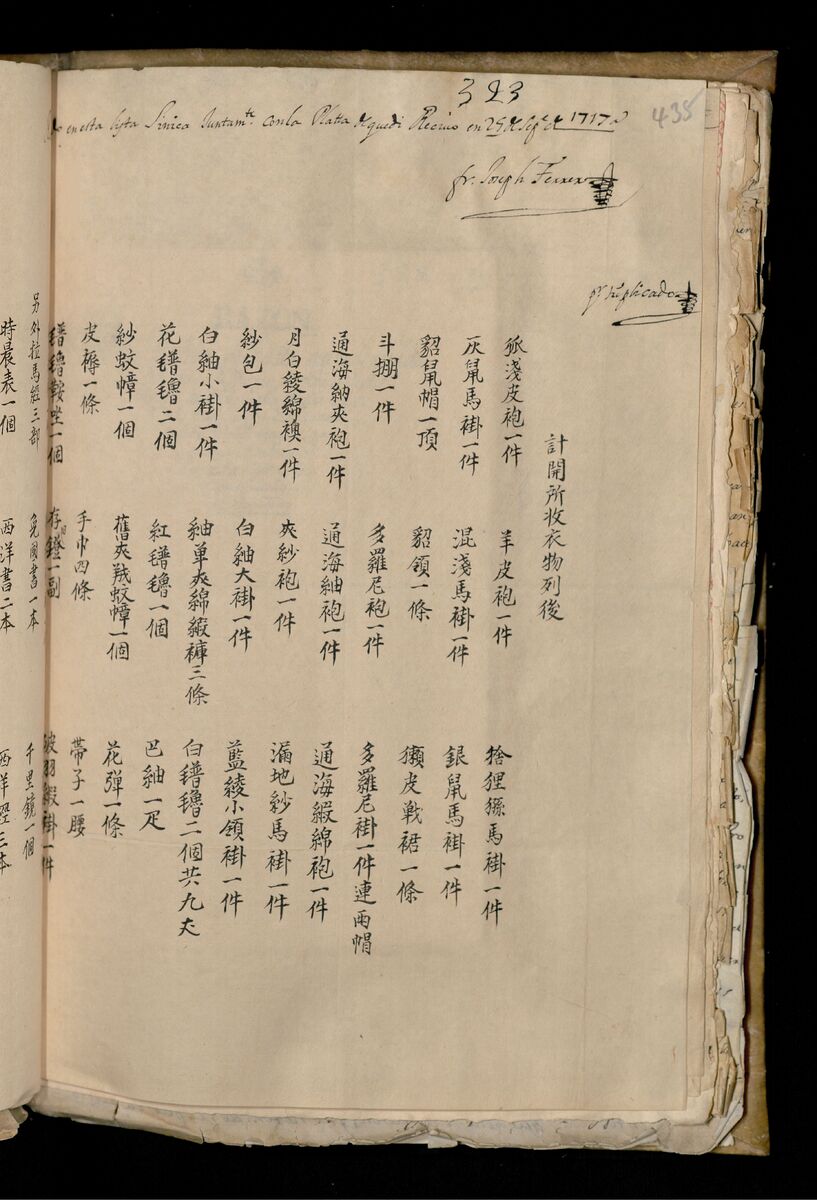 323
435
en esta lista Sinica Juntamte. con la Platta
Recivo en 29 de Sepe. de 1717 a
fr. Joseph Ferrer
pr. triplicado
計開所收衣物列後
狐淺皮袍一件 羊皮袍一件 猞狸猻馬褂一件
灰鼠馬褂一件 混淺馬褂一件 銀鼠馬褂一件
貂鼠帽一頂 貂領一條 獺皮戰裙一條
斗掤一件 多羅尼袍一件 多羅尼褂一件連雨帽
通海納夾袍一件 通海紬袍一件 通海緞綿袍一件
月白綾綿襖一件 夾紗袍一件 漏地紗馬褂一件
紗包一件 白紬大褂一件 藍綾小領褂一件
白紬小褂一件 紬单夾綿緞褲三條 白氆氌二個共九丈
花氆氌二個 紅氆氌一個 巴紬一疋
紗蚊幛一個 舊夾羢蚊幛一個 花彈一條
皮褥一條 手巾四條 帶子一腰
氆氌鞍坐一個 存旧鐙一副 羽緞褂一件
另外拉馬經三部 免國書一本 千里鏡一個
時晨表一個 西洋書二本 西洋 三本